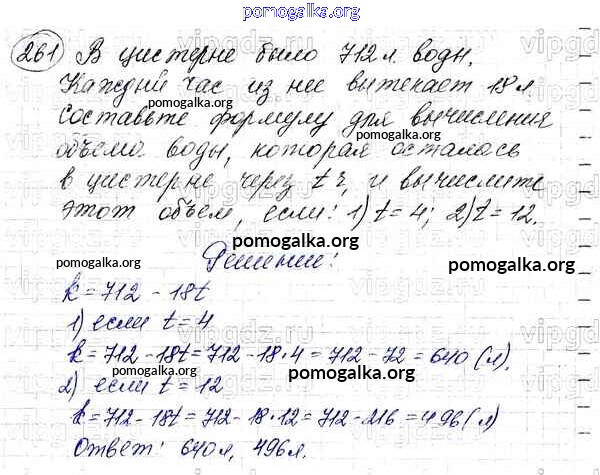 pomogalka.org
261 В цистерне было 712 л воды.
Каждый час из нее вытекает 18 л.
pomogalka.org pomogalka.org
Составьте формулу для вычисления
объема воды, которая осталась
pomogalka.org
в цистерне через t г, и вычислите
этот объем, если: 1) t = 4; 2) t = 12.
pomogalka.org
Решение:
pomogalka.org pomogalka.org
k = 712 - 18t
1) если t = 4
pomogalka.org
k = 712 - 18t = 712 - 18·4 = 712 - 72 = 640 (л).
pomogalka.org
2) если t = 12
k = 712 - 18t = 712 - 18·12 = 712 - 216 = 496 (л)
pomogalka.org
Ответ: 640 л, 496 л.
pomogalka.org